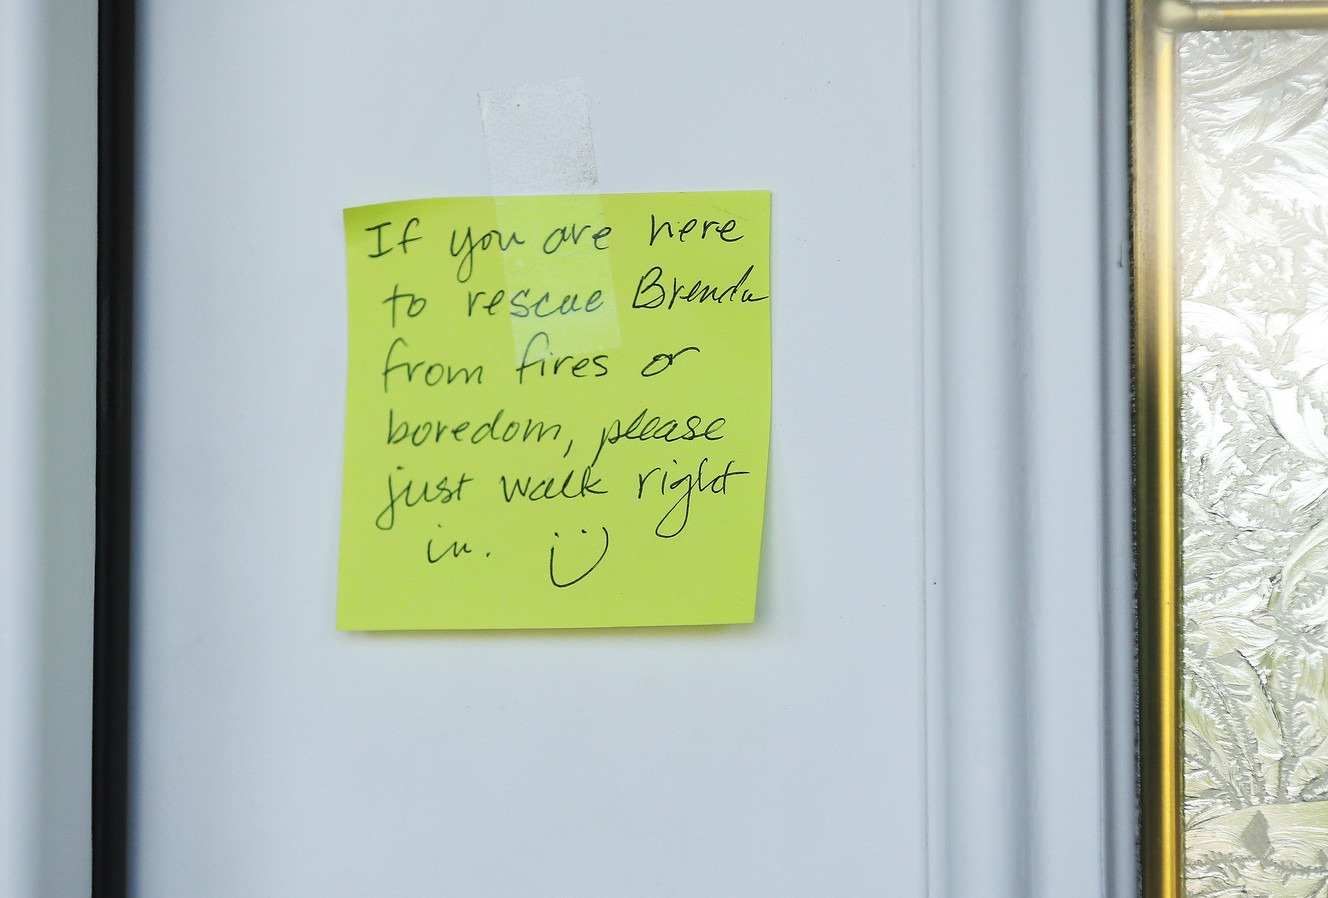 If you are here
to rescue Brenda
from fires or
boredom, please
just walk right
in. :)